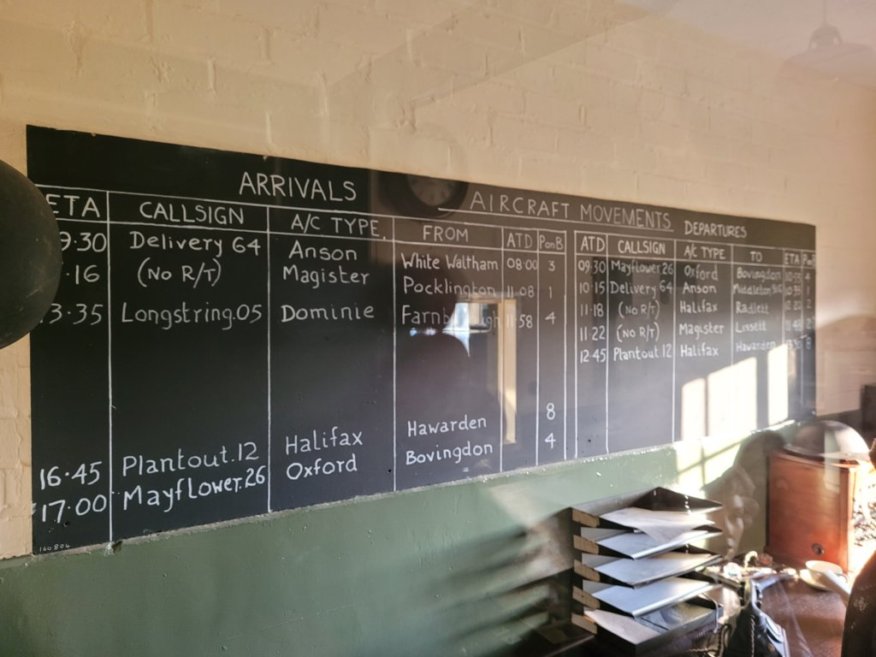 ARRIVALS AIRCRAFT MOVEMENTS DEPARTURES
ETA CALLSIGN A/C TYPE. FROM ATD PonB ATD CALLSIGN A/C TYPE TO ETA PonB
9.30 Delivery 64 Anson White Waltham 08:00 3 09:30 Mayflower.26 Oxford Bovingdon 4
·16 (No R/T) Magister Pocklington 11:08 1 10·15 Delivery 64 Anson Middleton 1
3·35 Longstring.05 Dominie 11:58 4 11·18 (No R/T) Halifax Radlett 2
11.22 (No R/T) Magister Lissett
12·45 Plantout.12 Halifax Hawarden 8
16·45 Plantout.12 Halifax Hawarden 8
17·00 Mayflower.26 Oxford Bovingdon 4
160804